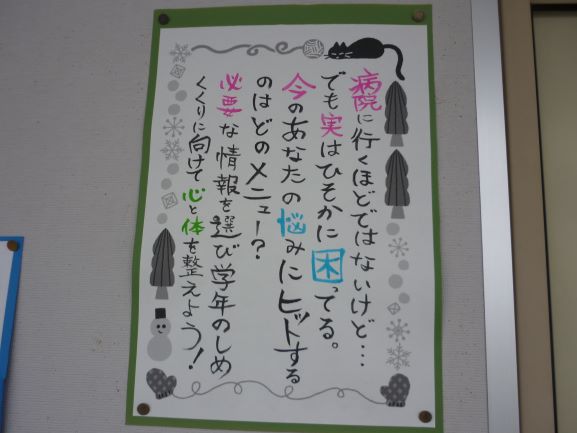 病院に行くほどではないけど…
でも実はひそかに困ってる。
今のあなたの悩みにヒットする
のはどのメニュー？
必要な情報を選び学年のしめ
くくりに向けて心と体を整えよう！